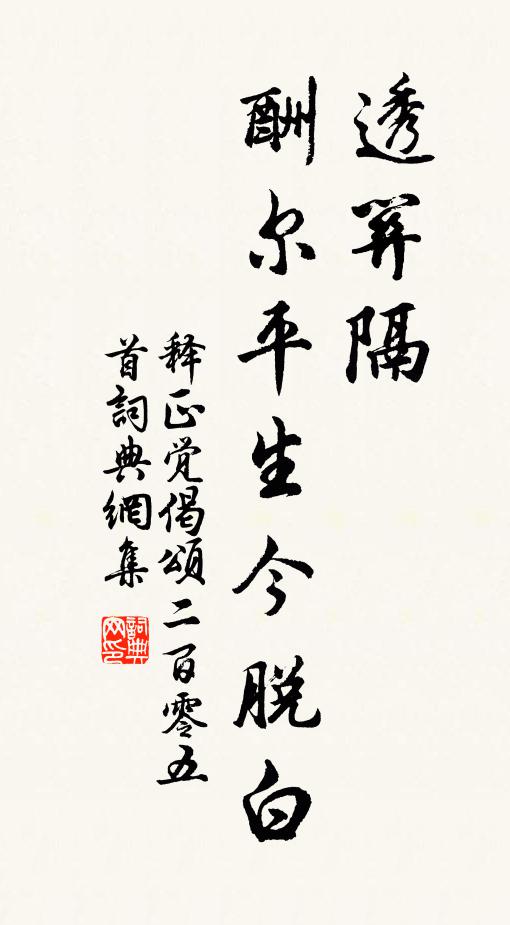 透隔
酬尔平生今脱白
释正觉偈頌二百零五
首詞典網集
詞典
网印